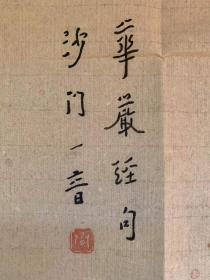 華嚴經句
沙门一音